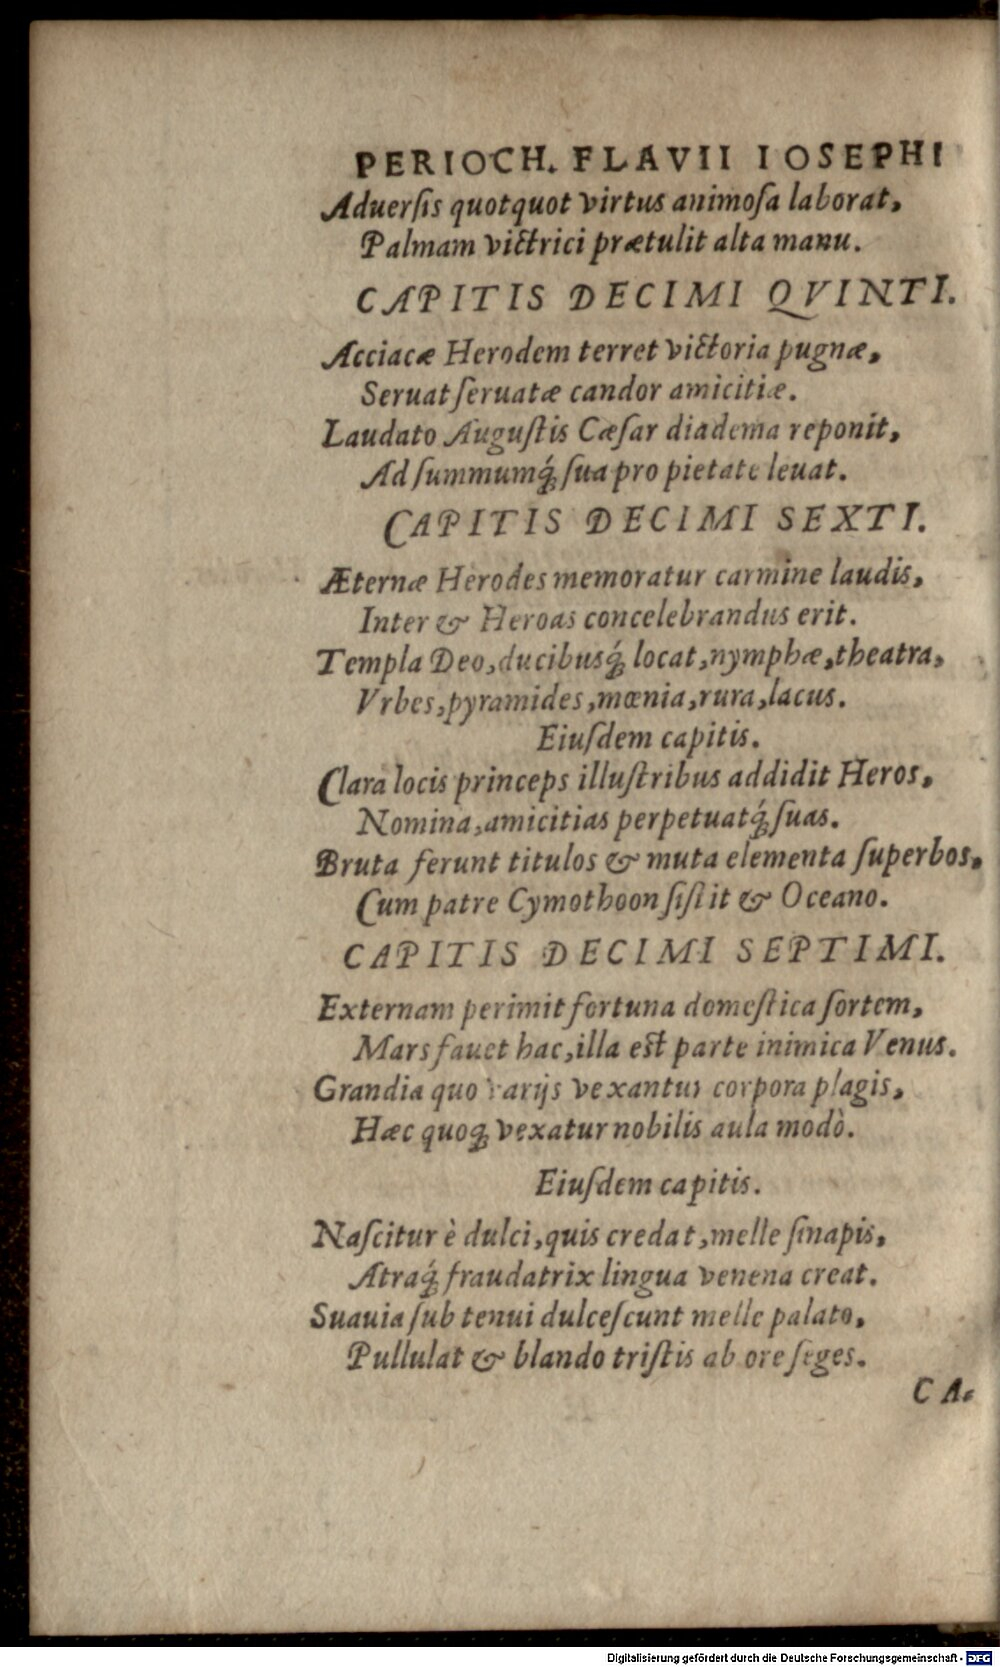 PERIOCH. FLAVII IOSEPHI
Aduerſis quotquot virtus animoſa laborat,
Palmam victrici prætulit alta manu.
CAPITIS DECIMI QVINTI.
Acciacæ Herodem terret victoria pugnæ,
Seruat ſeruatæ candor amicitiæ.
Laudato Auguſtis Cæſar diadema reponit,
Ad ſummumq́; ſua pro pietate leuat.
CAPITIS DECIMI SEXTI.
Æternæ Herodes memoratur carmine laudis,
Inter & Heroas concelebrandus erit.
Templa Deo, ducibusq́; locat, nymphæ, theatra,
Vrbes, pyramides, mœnia, rura, lacus.
Eiuſdem capitis.
Clara locis princeps illuſtribus addidit Heros,
Nomina, amicitias perpetuatq́; ſuas.
Bruta ferunt titulos & muta elementa ſuperbos,
Cum patre Cymothoon ſiſtit & Oceano.
CAPITIS DECIMI SEPTIMI.
Externam perimit fortuna domeſtica ſortem,
Mars fauet hac, illa eſt parte inimica Venus.
Grandia quo varijs vexantur corpora plagis,
Hæc quoq; vexatur nobilis aula modò.
Eiuſdem capitis.
Naſcitur è dulci, quis credat, melle ſinapis,
Atraq́; fraudatrix lingua venena creat.
Suauia ſub tenui dulceſcunt melle palato,
Pullulat & blando triſtis ab ore ſeges.
CA-
Digitalisierung gefördert durch die Deutsche Forschungsgemeinschaft - DFG